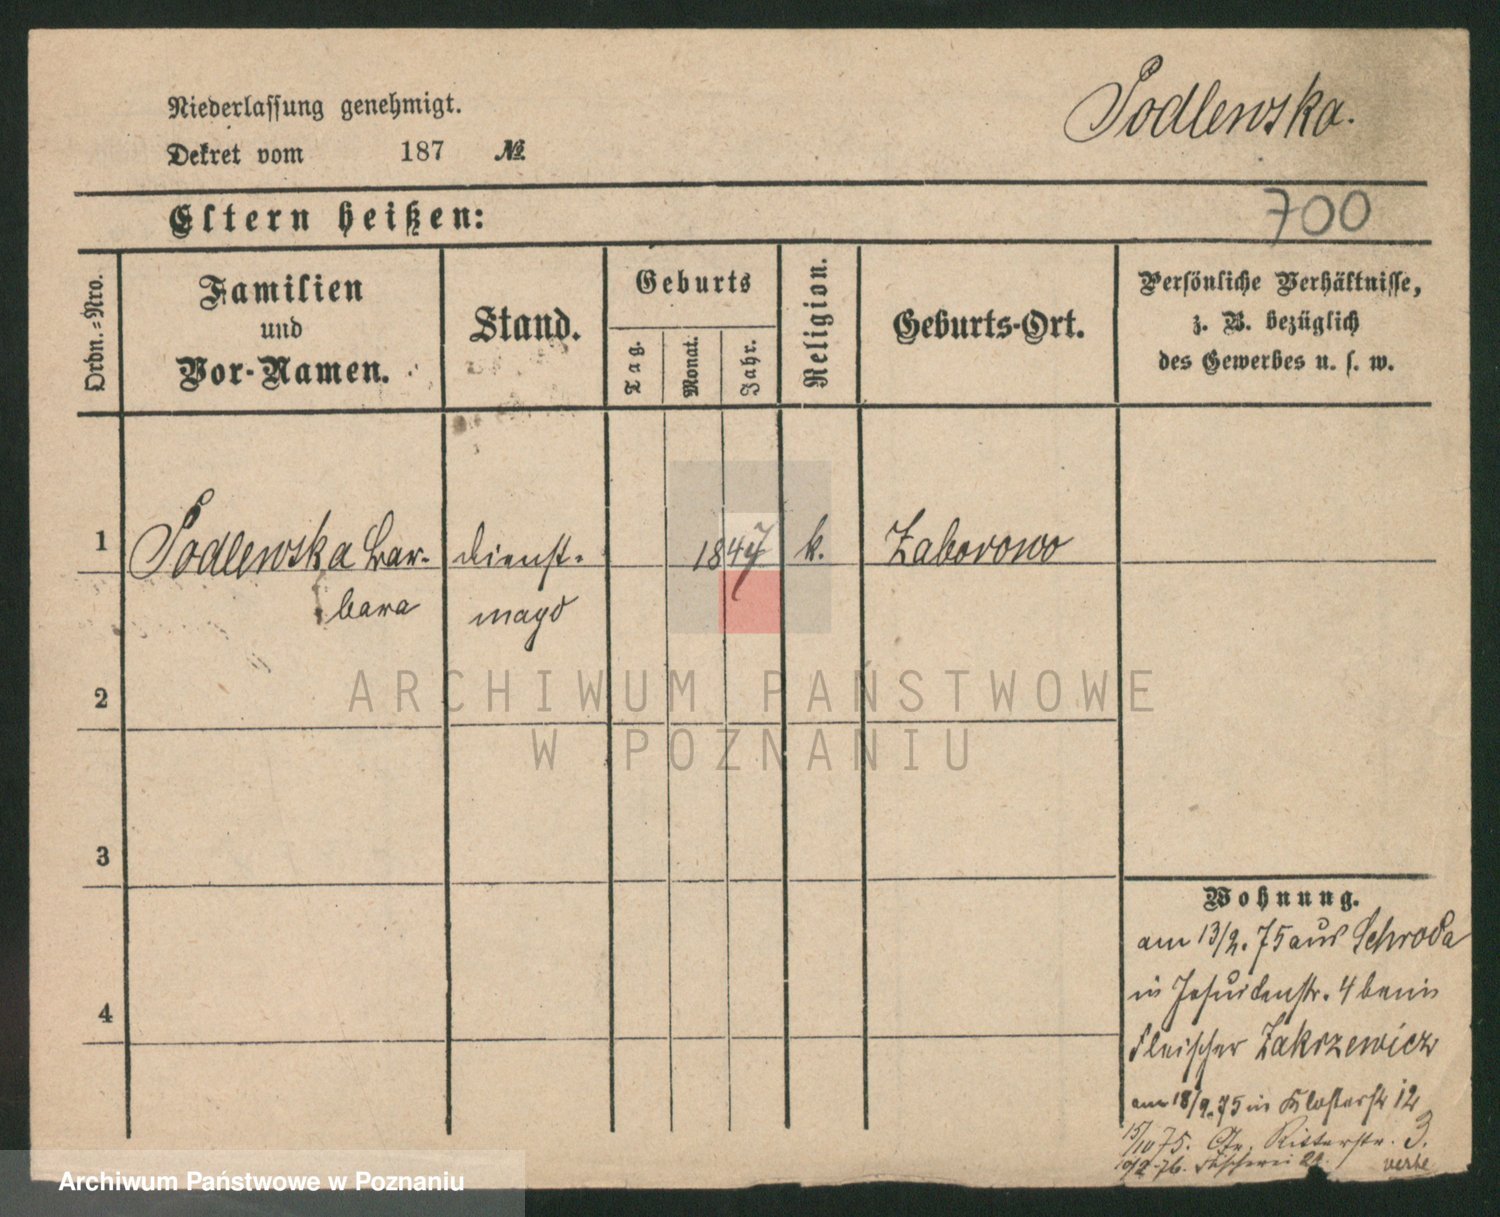 Niederlassung genehmigt.
Dekret vom 187 №
Podlewska.
Eltern heißen:
700
Ordn.-Nro.
Familien
und
Vor-Namen.
Stand.
Geburts
Tag.
Monat.
Jahr.
Religion.
Geburts-Ort.
Persönliche Verhältnisse,
z. B. bezüglich
des Gewerbes u. s. w.
1 Podlewska Bar- dienst- 1847 k. Zaborowo
bara magd
2
ARCHIWUM PAŃSTWOWE
W POZNANIU
3
4
Wohnung.
am 13/2. 75 aus Schroda
in Jesuitenstr. 4 beim
Fleischer Zakrzewicz
am 18/9. 75 in Klosterstr 12
15/10 75. Ritterstr. 3.
76. Fischerei
Archiwum Państwowe w Poznaniu